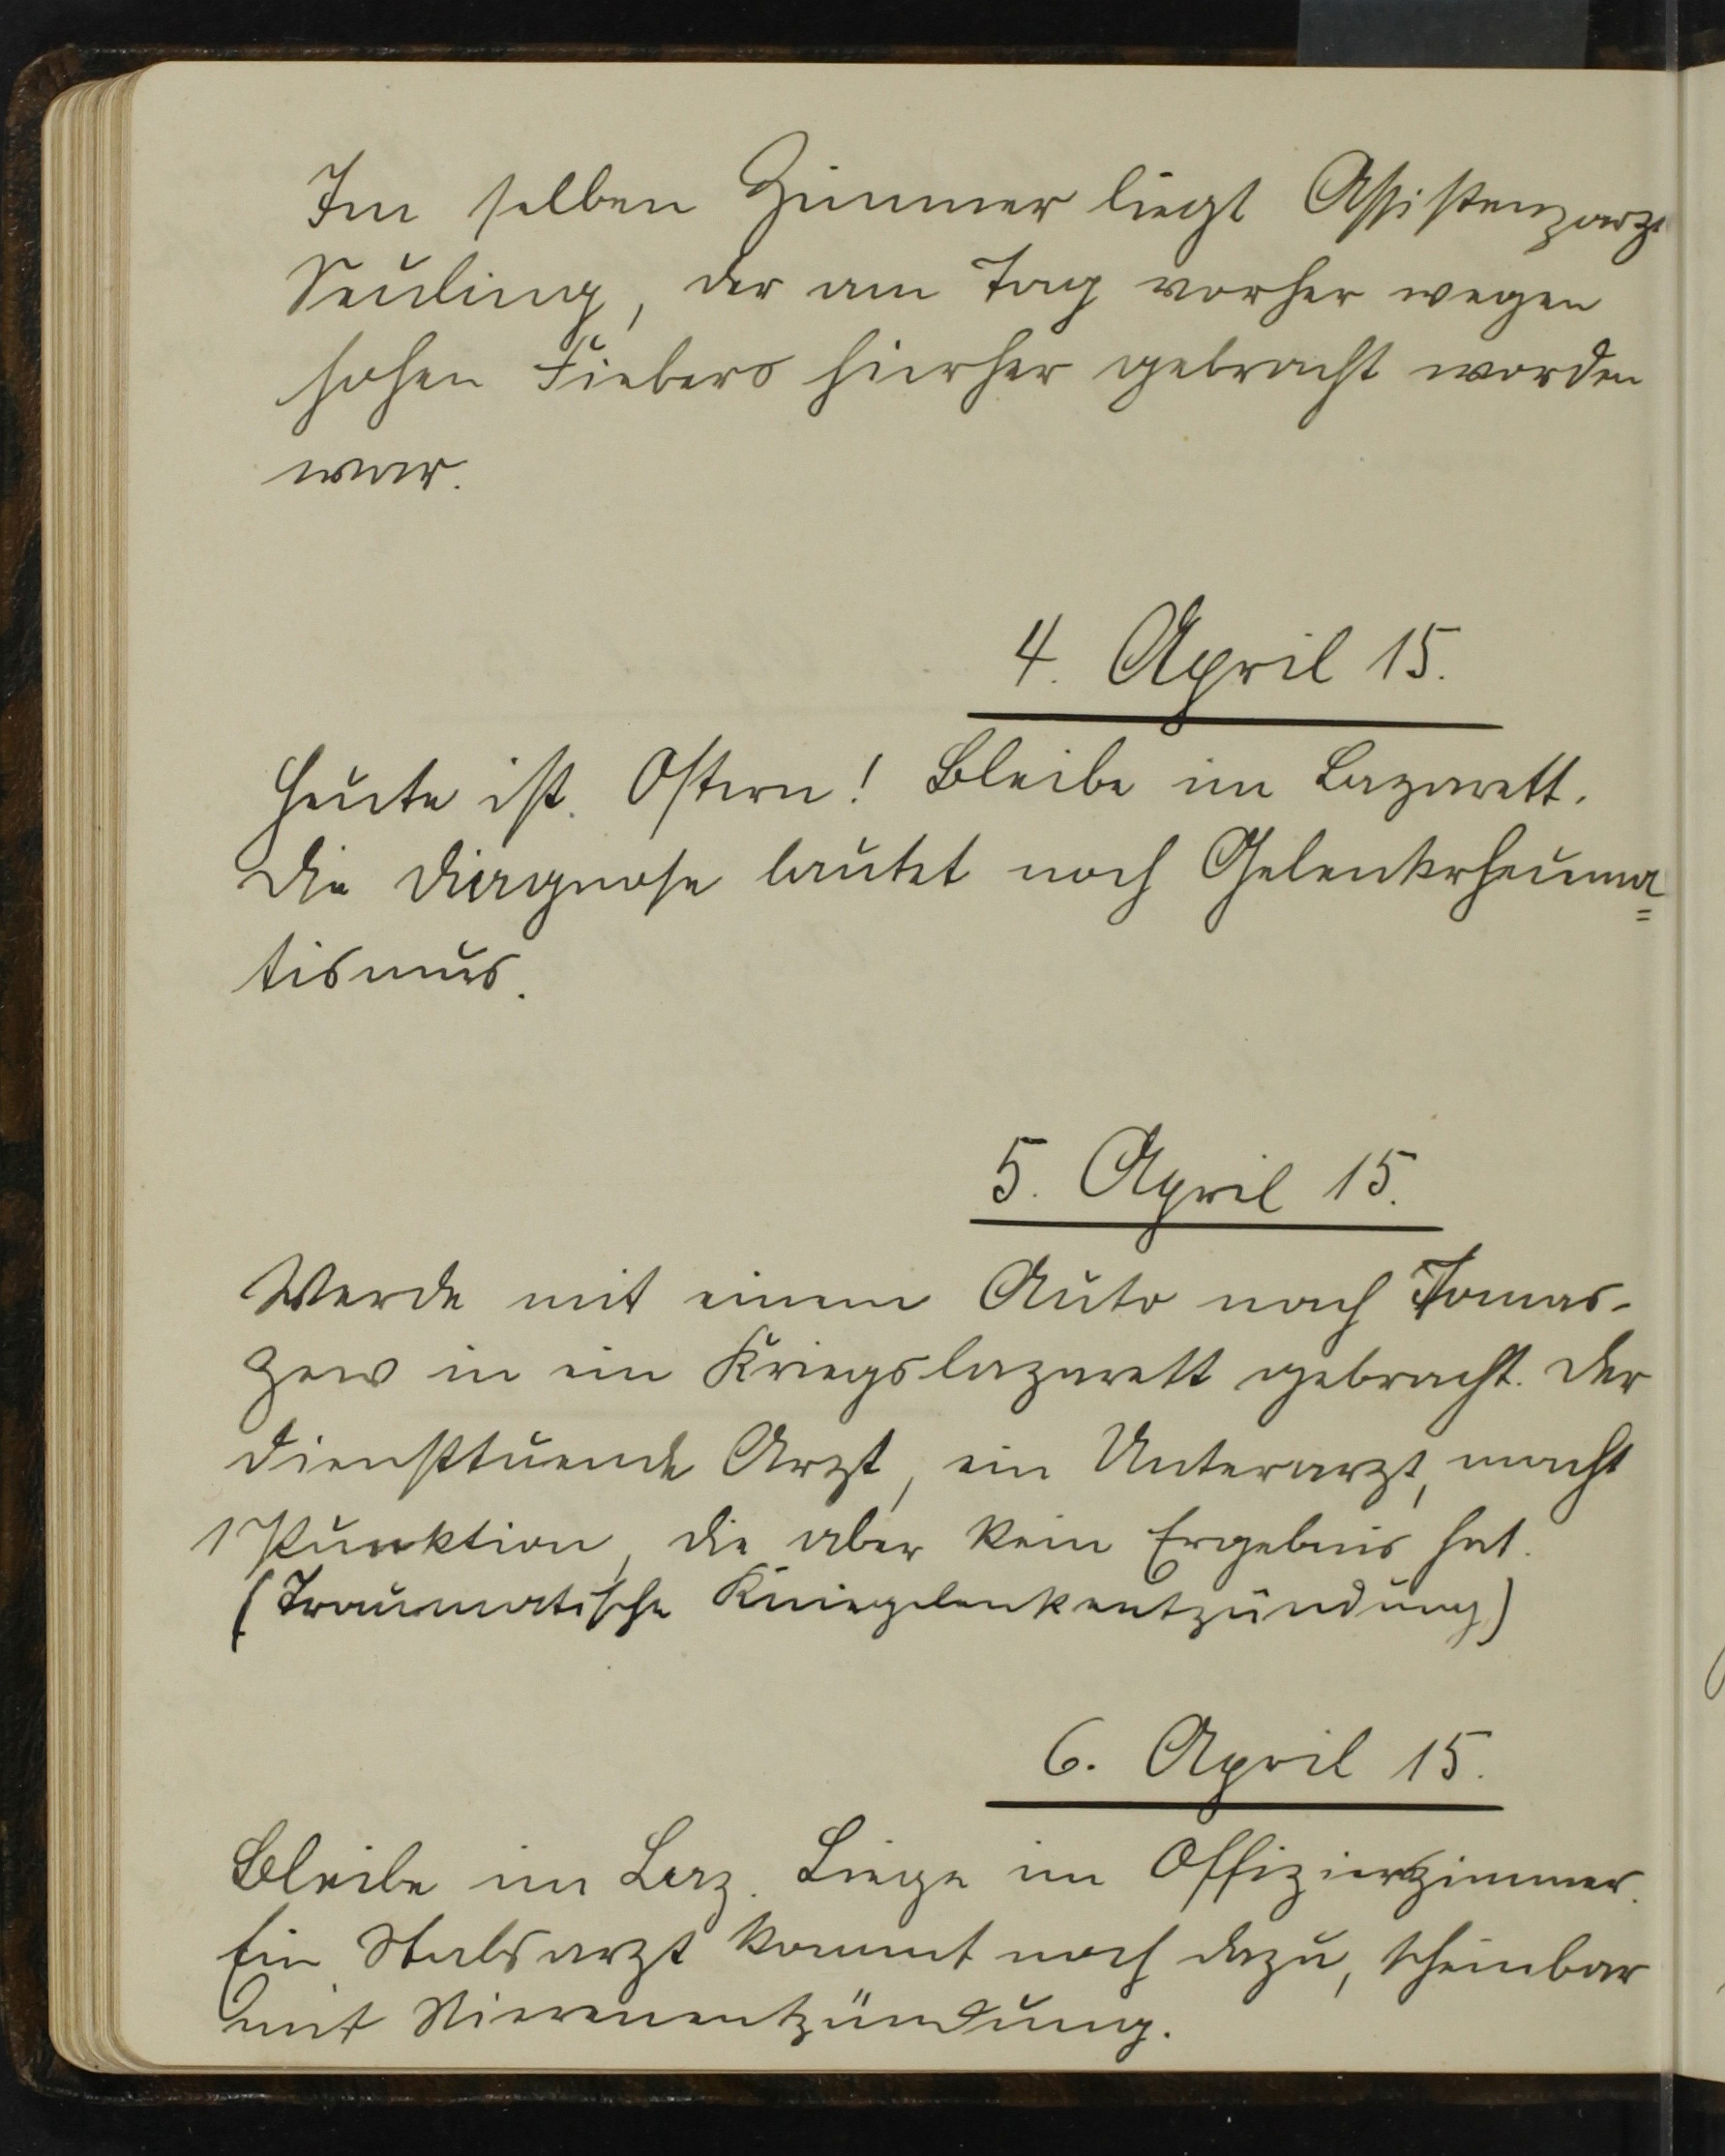 Im selben Zimmer liegt Assistenzarzt
Seuling, der am Tag vorher wegen
hohen Fiebers hierher gebracht worden
war.
4. April 15.
Heute ist Ostern! Bleibe im Lazarett.
Die Diagnose lautet noch Gelenkrheuma=
tismus.
5. April 15.
Werde mit einem Auto nach Tomas-
zow in ein Kriegslazarett gebracht. Der
diensttuende Arzt, ein Unterarzt, macht
1 Punktion, die aber kein Ergebnis hat.
(Traumatische Kniegelenkentzündung)
6. April 15.
Bleibe im Laz. Liege im Offizierszimmer.
Ein Stabsarzt kommt noch dazu, scheinbar
mit Nierenentzündung.